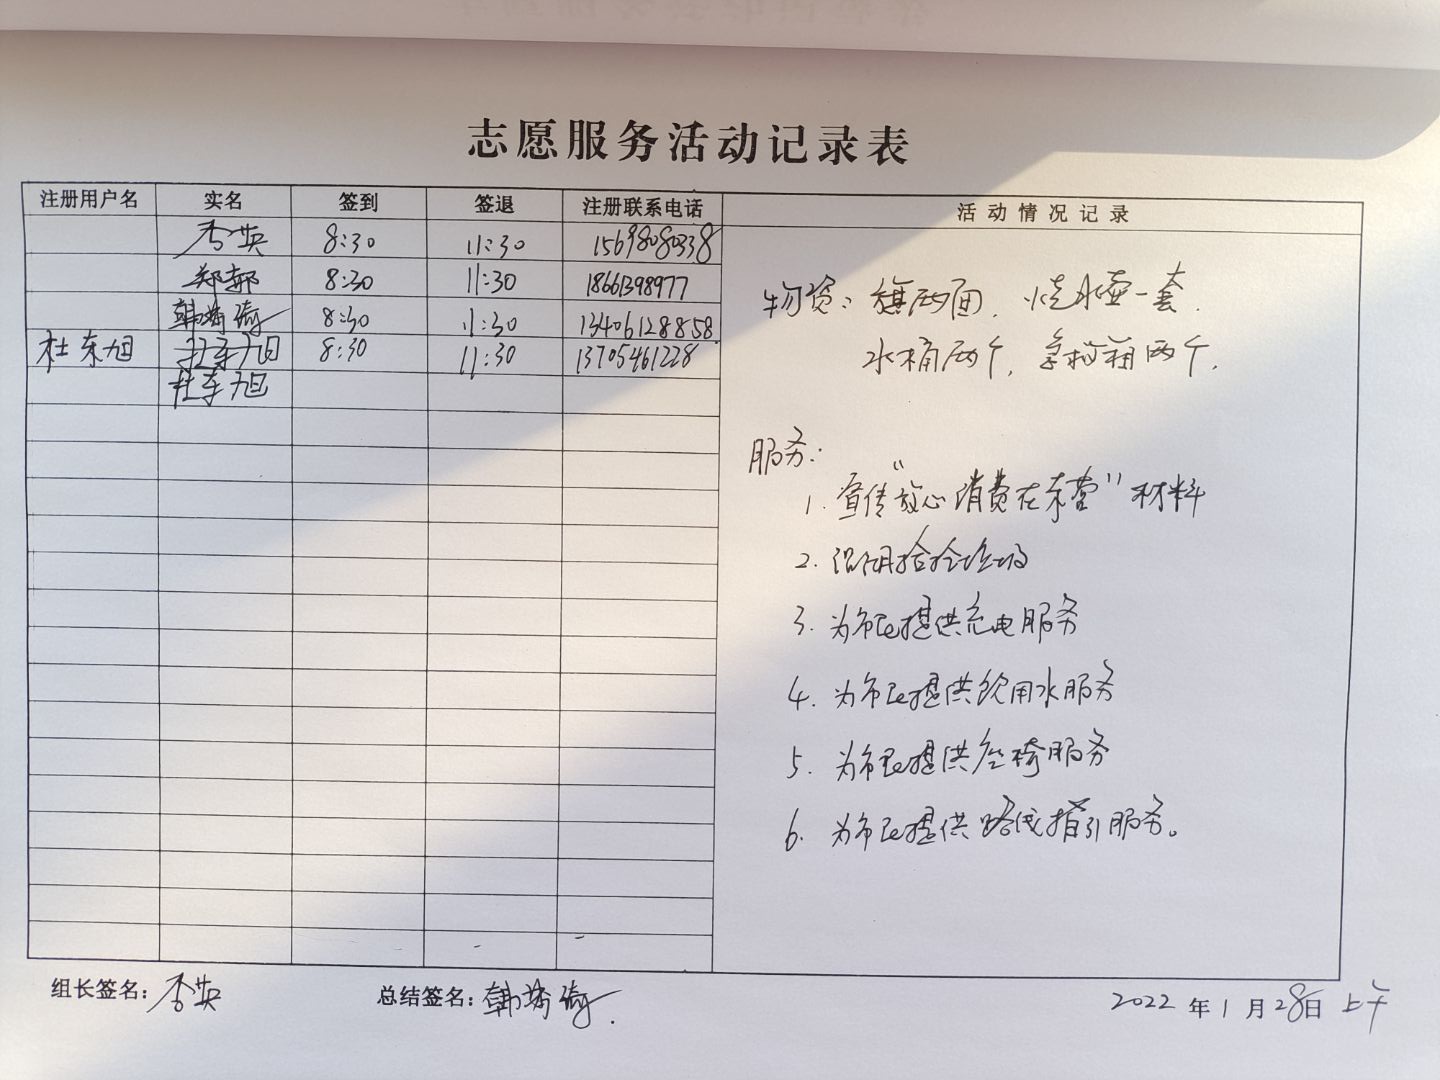 志愿服务活动记录表
注册用户名 实名 签到 签退 注册联系电话 活动情况记录
8:30 11:30 15698080338
郑郝 8:30 11:30 18661398977
8:30 11:30 13406128858
杜东旭 杜东旭 8:30 11:30 13705461228
杜东旭
物资：旗两面，烧水壶一套，
水桶两个，两个，
服务：
1.宣传“放心消费在东营”材料
2.沿湖捡拾垃圾
3.为市民提供充电服务
4.为市民提供饮用水服务
5.为市民提供座椅服务
6.为市民提供路线指引服务。
组长签名： 总结签名： 2022年1月28日上午